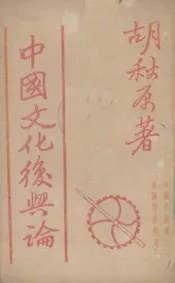 胡秋原著
中國文化復興論